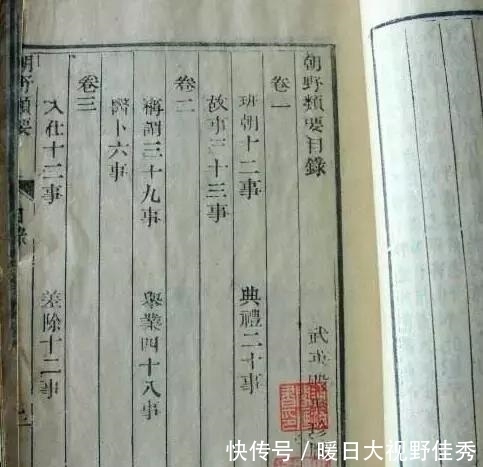 朝野類要目錄
武英殿聚珍
卷一
班朝十二事 典禮二十事
故事三十三事
卷二
稱謂三十九事 舉業四十八事
醫卜六事
卷三
入仕十二事 差除十二事
朝野類要 目錄
快传号 / 暖日大视野佳秀